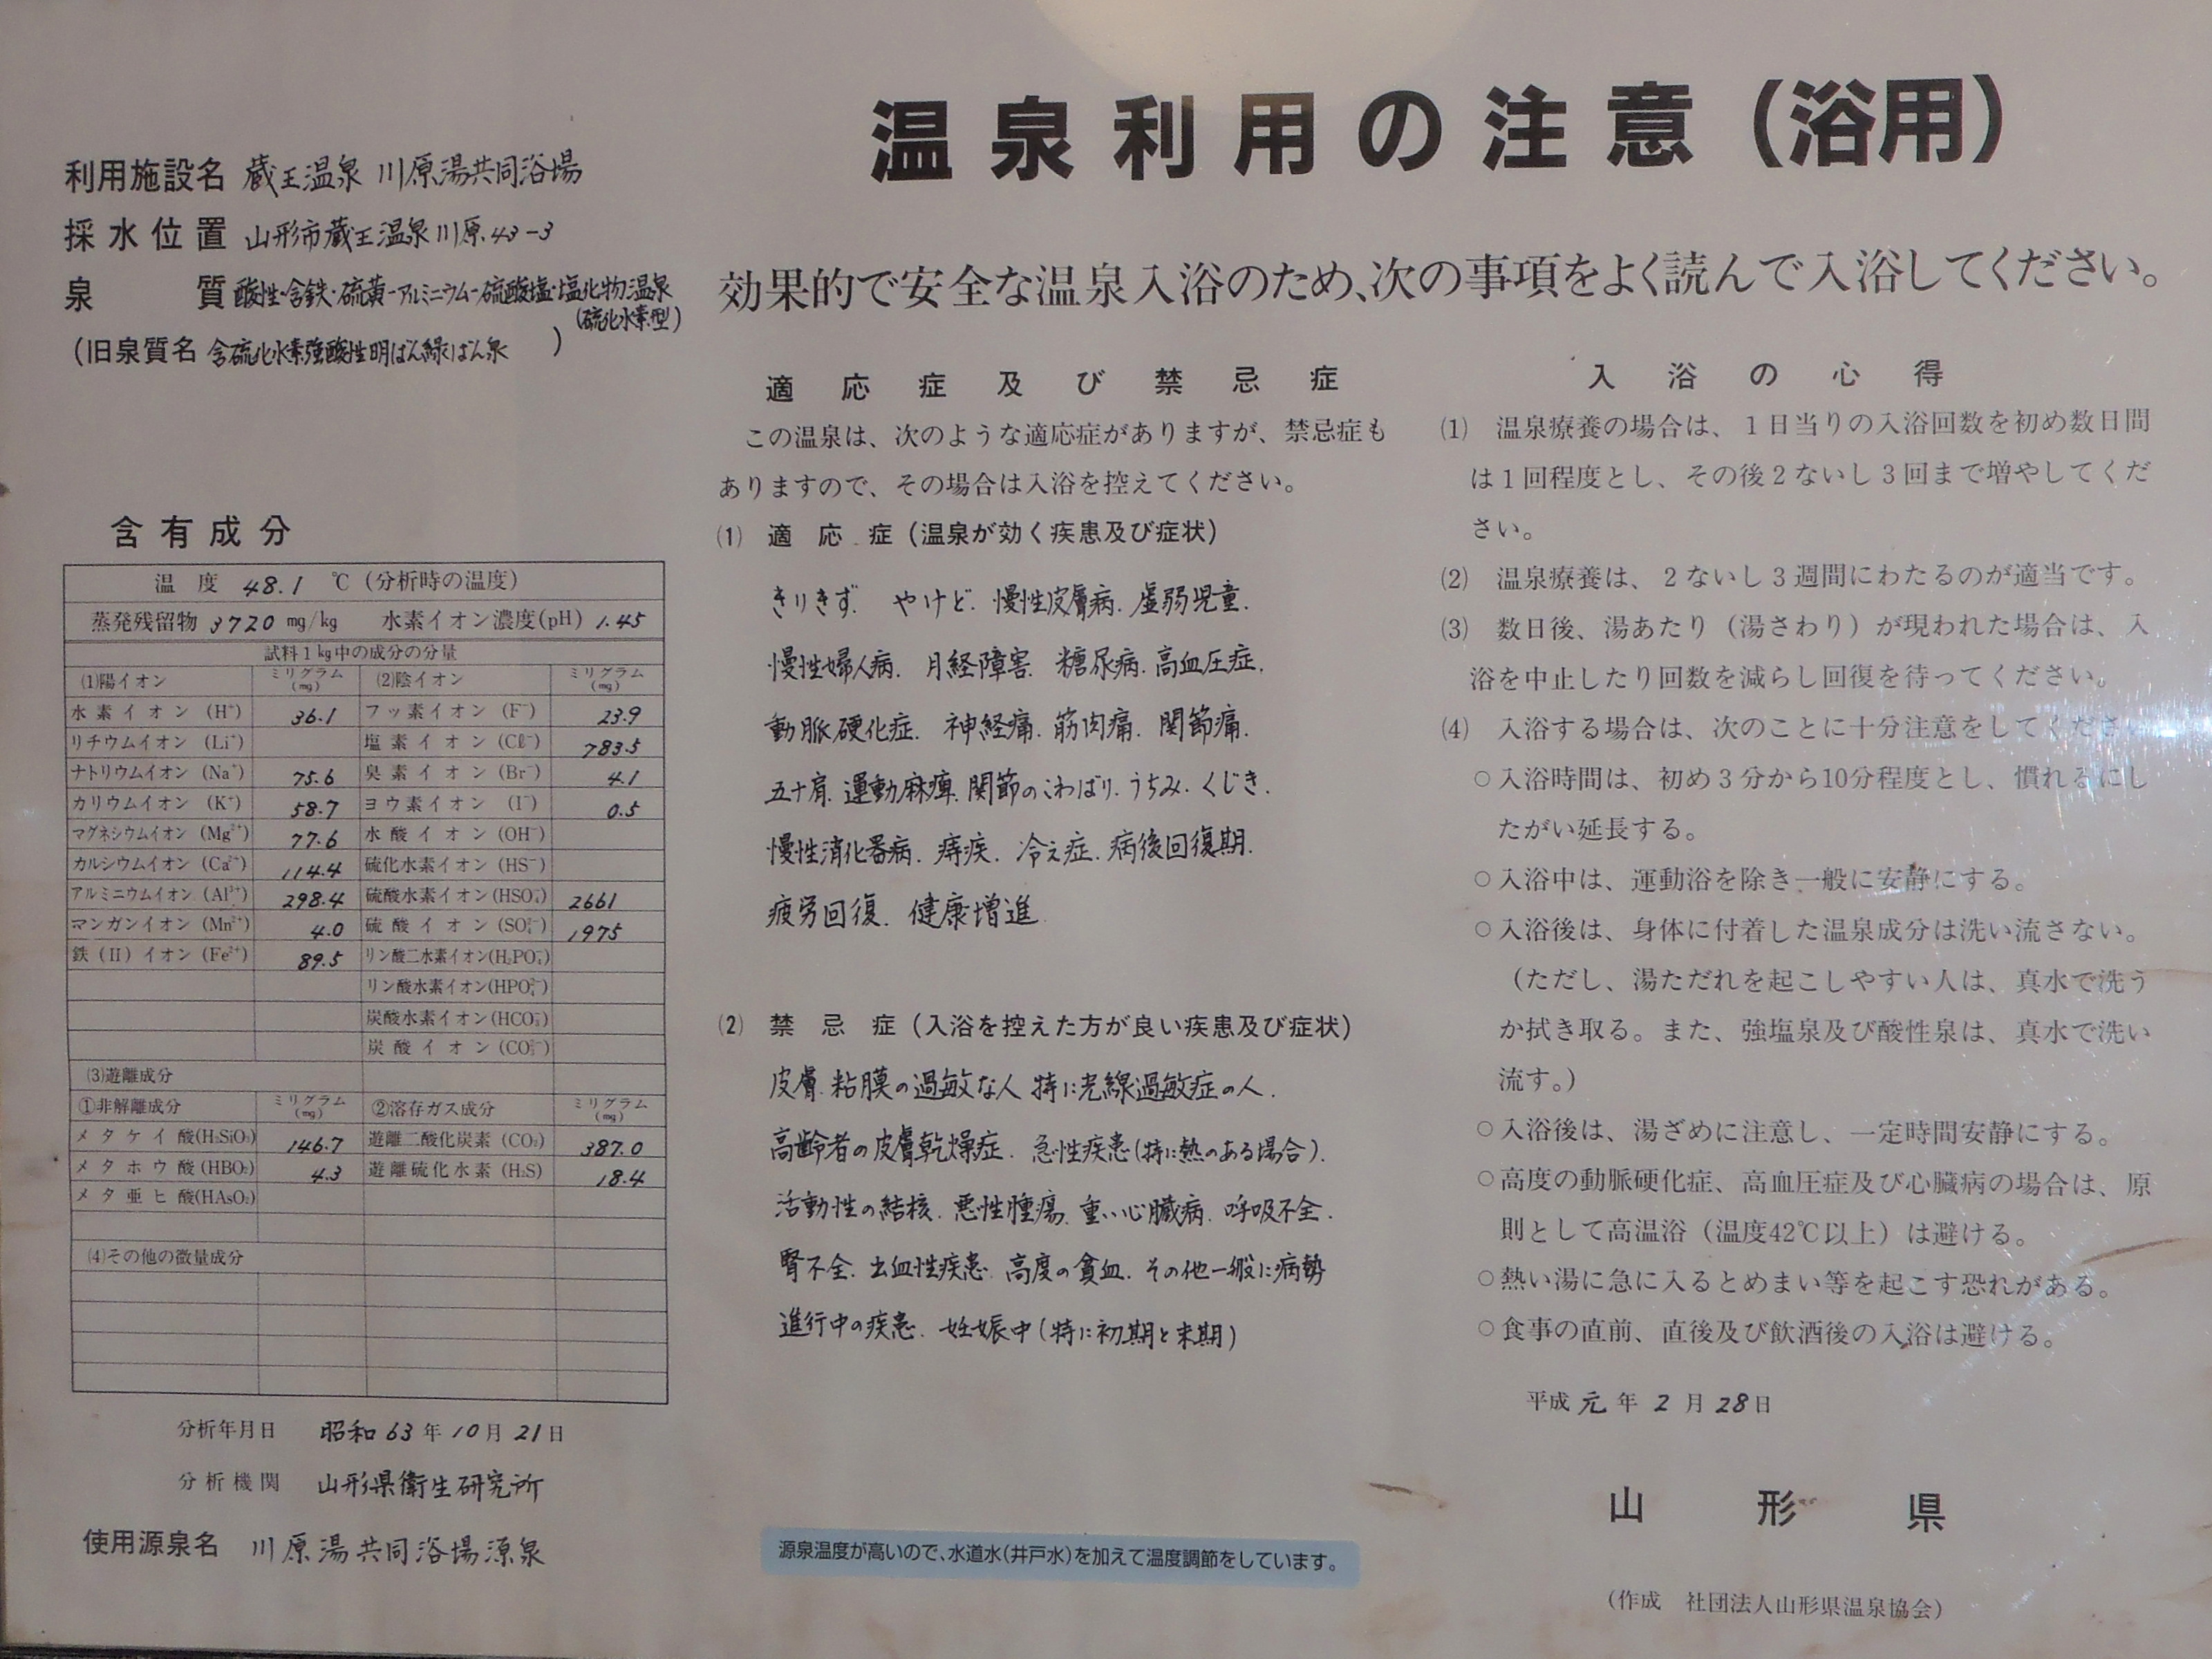 温泉利用の注意(浴用)
効果的で安全な温泉入浴のため、次の事項をよく読んで入浴してください。
利用施設名 蔵王温泉 川原湯共同浴場
採水位置 山形市蔵王温泉川原43-3
泉質 酸性・含鉄・硫黄-アルミニウム-硫酸塩・塩化物温泉
(硫化水素型)
(旧泉質名 含硫化水素強酸性明ばん緑ばん泉)
含有成分
温度 48.1 ℃(分析時の温度)
蒸発残留物 3720 mg/kg 水素イオン濃度(pH) 1.45
試料1kg中の成分の分量
(1)陽イオン ミリグラム(mg) (2)陰イオン ミリグラム(mg)
水素イオン (H⁺) 36.1 フッ素イオン (F⁻) 23.9
リチウムイオン (Li⁺) 塩素イオン (Cℓ⁻) 783.5
ナトリウムイオン (Na⁺) 75.6 臭素イオン (Br⁻) 4.1
カリウムイオン (K⁺) 58.7 ヨウ素イオン (I⁻) 0.5
マグネシウムイオン (Mg²⁺) 77.6 水酸イオン (OH⁻)
カルシウムイオン (Ca²⁺) 114.4 硫化水素イオン (HS⁻)
アルミニウムイオン (Al³⁺) 298.4 硫酸水素イオン (HSO₄⁻) 2661
マンガンイオン (Mn²⁺) 4.0 硫酸イオン (SO₄²⁻) 1975
鉄(II)イオン (Fe²⁺) 89.5 リン酸二水素イオン (H₂PO₄⁻)
リン酸水素イオン (HPO₄²⁻)
炭酸水素イオン (HCO₃⁻)
炭酸イオン (CO₃²⁻)
(3)遊離成分
①非解離成分 ミリグラム(mg) ②溶存ガス成分 ミリグラム(mg)
メタケイ酸 (H₂SiO₃) 146.7 遊離二酸化炭素 (CO₂) 387.0
メタホウ酸 (HBO₂) 4.3 遊離硫化水素 (H₂S) 18.4
メタ亜ヒ酸 (HAsO₂)
(4)その他の微量成分
分析年月日 昭和63年10月21日
分析機関 山形県衛生研究所
使用源泉名 川原湯共同浴場源泉
適応症及び禁忌症
この温泉は、次のような適応症がありますが、禁忌症も
ありますので、その場合は入浴を控えてください。
(1) 適応症(温泉が効く疾患及び症状)
きりきず. やけど. 慢性皮膚病. 虚弱児童.
慢性婦人病. 月経障害. 糖尿病. 高血圧症.
動脈硬化症. 神経痛. 筋肉痛. 関節痛.
五十肩. 運動麻痺. 関節のこわばり. うちみ. くじき.
慢性消化器病. 痔疾. 冷え症. 病後回復期.
疲労回復. 健康増進
(2) 禁忌症(入浴を控えた方が良い疾患及び症状)
皮膚.粘膜の過敏な人 特に光線過敏症の人.
高齢者の皮膚乾燥症. 急性疾患(特に熱のある場合).
活動性の結核. 悪性腫瘍. 重い心臓病. 呼吸不全.
腎不全. 出血性疾患. 高度の貧血. その他一般に病勢
進行中の疾患. 妊娠中(特に初期と末期)
源泉温度が高いので、水道水(井戸水)を加えて温度調節をしています。
入浴の心得
(1) 温泉療養の場合は、1日当りの入浴回数を初め数日間
は1回程度とし、その後2ないし3回まで増やしてくだ
さい。
(2) 温泉療養は、2ないし3週間にわたるのが適当です。
(3) 数日後、湯あたり(湯さわり)が現われた場合は、入
浴を中止したり回数を減らし回復を待ってください。
(4) 入浴する場合は、次のことに十分注意をしてください
○入浴時間は、初め3分から10分程度とし、慣れるにし
たがい延長する。
○入浴中は、運動浴を除き一般に安静にする。
○入浴後は、身体に付着した温泉成分は洗い流さない。
(ただし、湯ただれを起こしやすい人は、真水で洗う
か拭き取る。また、強塩泉及び酸性泉は、真水で洗い
流す。)
○入浴後は、湯ざめに注意し、一定時間安静にする。
○高度の動脈硬化症、高血圧症及び心臓病の場合は、原
則として高温浴(温度42℃以上)は避ける。
○熱い湯に急に入るとめまい等を起こす恐れがある。
○食事の直前、直後及び飲酒後の入浴は避ける。
平成元年2月28日
山形県
(作成 社団法人山形県温泉協会)